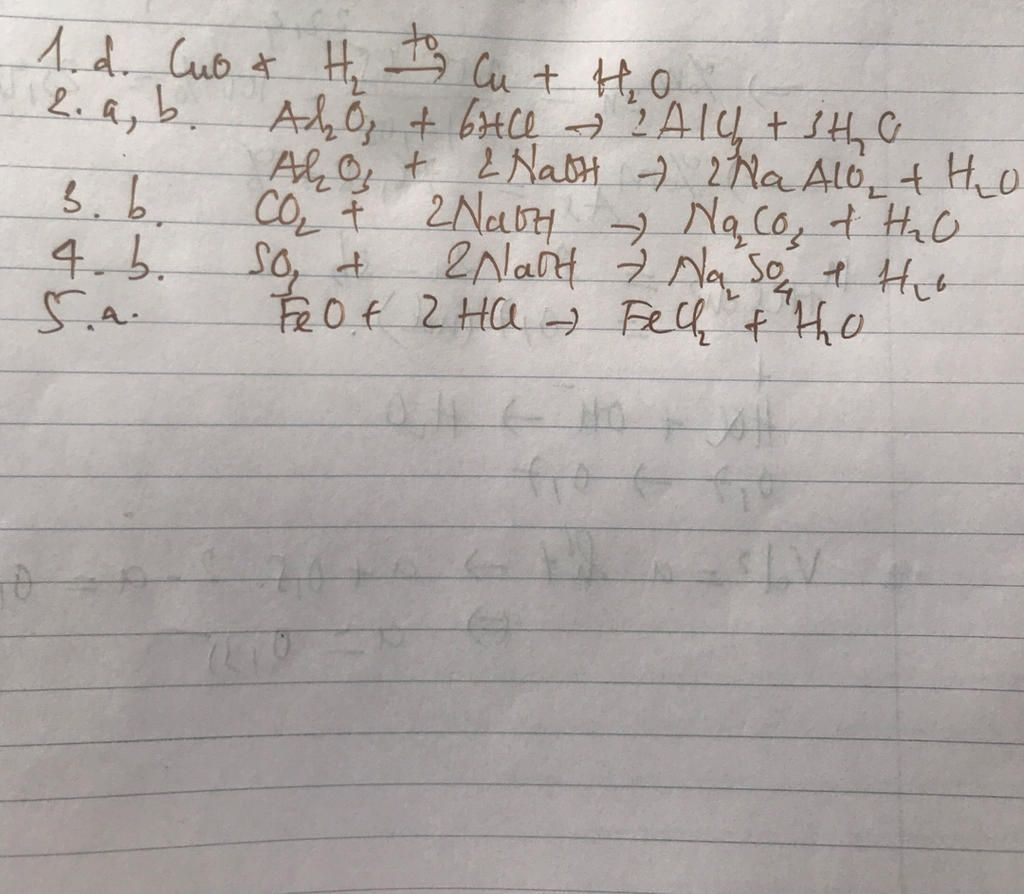 1. d. CuO + H₂ →(t⁰) Cu + H₂O
2. a, b. Al₂O₃ + 6HCl → 2AlCl₃ + 3H₂O
Al₂O₃ + 2NaOH → 2NaAlO₂ + H₂O
3. b. CO₂ + 2NaOH → Na₂CO₃ + H₂O
4. b. SO₃ + 2NaOH → Na₂SO₄ + H₂O
5. a. FeO + 2HCl → FeCl₂ + H₂O